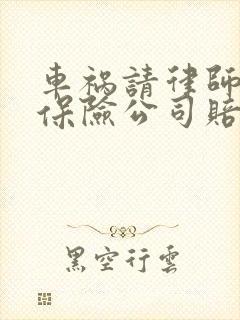 車禍請律師
保險公司賠
黑空行雲